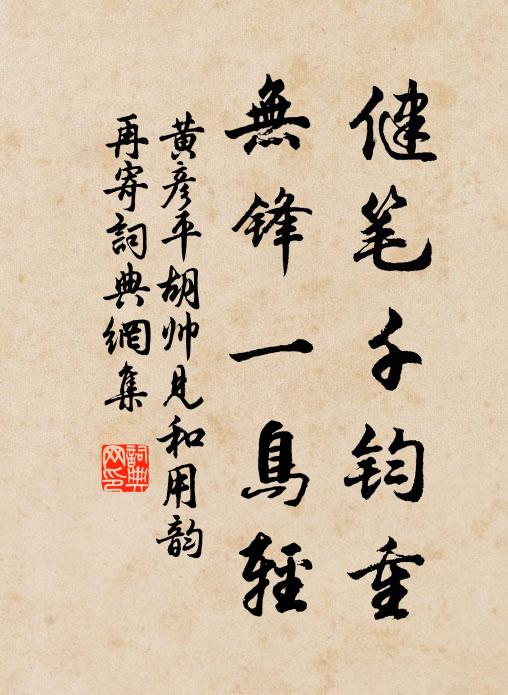 健笔千钧重
無锋一鳥輕
黄彦平胡帅见和用韵
再寄詞典網集
詞典网印